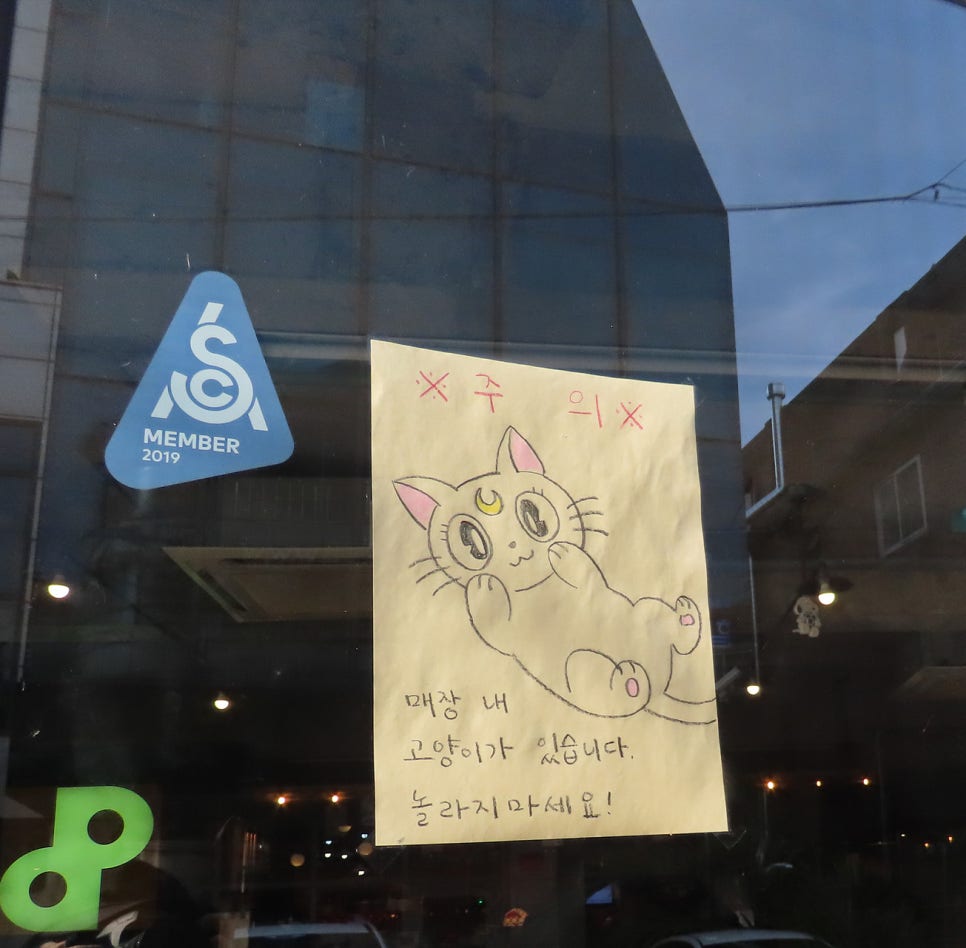 SCA
MEMBER
2019
※주 의※
매장 내
고양이가 있습니다.
놀라지마세요!